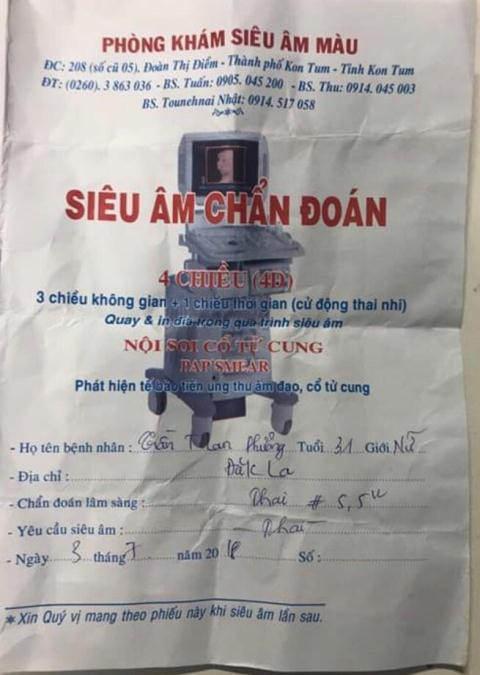 PHÒNG KHÁM SIÊU ÂM MÀU
ĐC: 208 (số cũ 05). Đoàn Thị Điểm - Thành phố Kon Tum - Tỉnh Kon Tum
ĐT: (0260). 3 863 036 - BS. Tuấn: 0905. 045 200 - BS. Thu: 0914. 045 003
BS. Tounehnai Nhật: 0914. 517 058
SIÊU ÂM CHẨN ĐOÁN
4 CHIỀU (4D)
3 chiều không gian + 1 chiều thời gian (cử động thai nhi)
Quay & in đĩa trong quá trình siêu âm
NỘI SOI CỔ TỬ CUNG
PAP'SMEAR
Phát hiện tế bào tiền ung thư âm đạo, cổ tử cung
- Họ tên bệnh nhân : Trần Phương Tuổi 31 Giới Nữ
- Địa chỉ : Đăk La
- Chẩn đoán lâm sàng : Thai # 5,5
- Yêu cầu siêu âm : Thai
- Ngày 3 tháng 7 năm 2018 Số :
* Xin Quý vị mang theo phiếu này khi siêu âm lần sau.